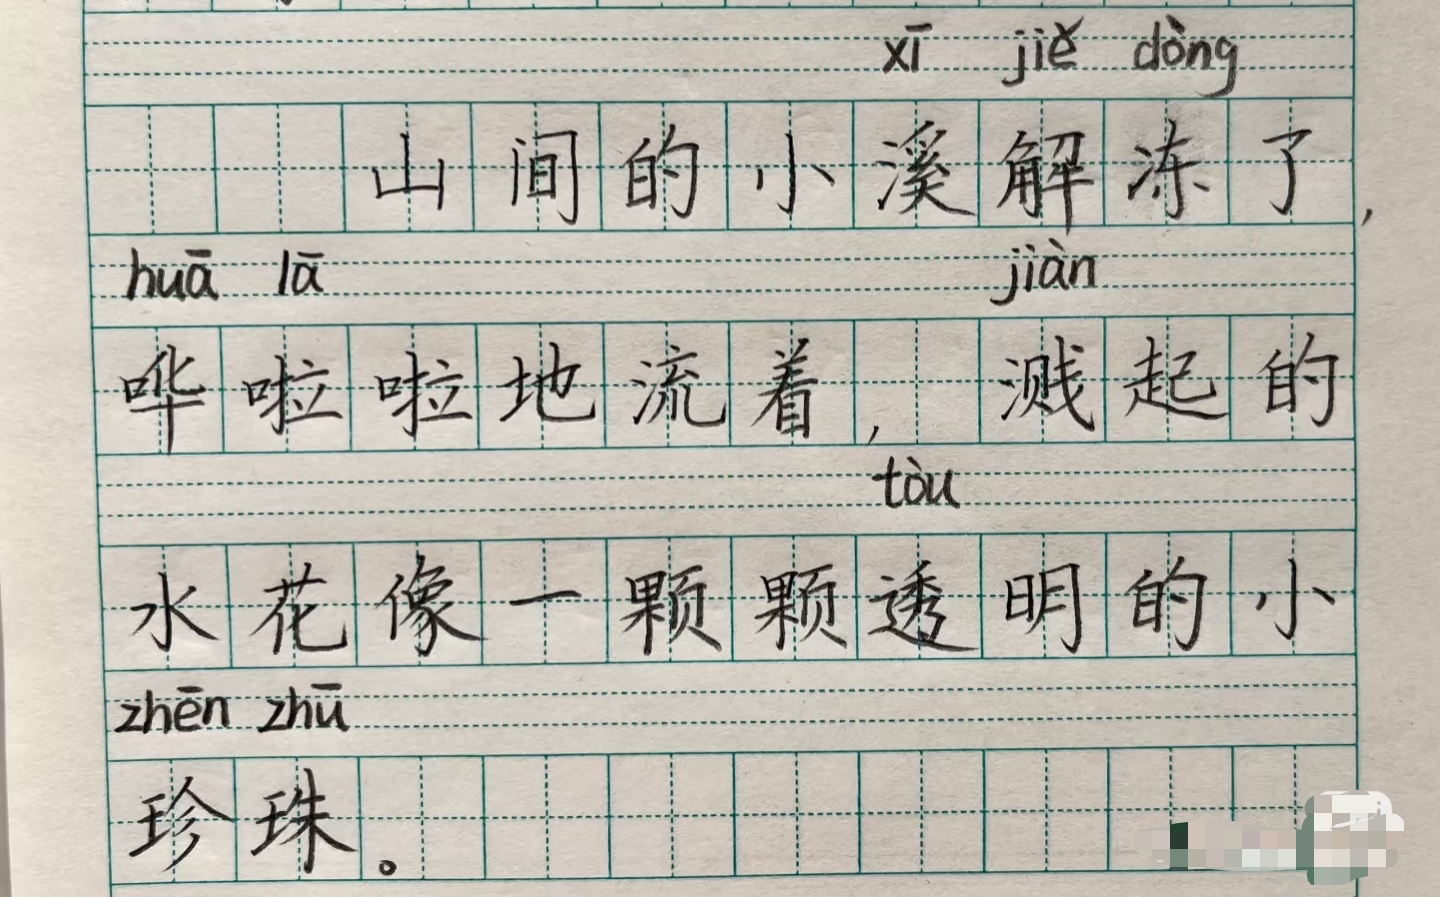 xī jiě dòng
山间的小溪解冻了，
huā lā jiàn
哗啦啦地流着，溅起的
tòu
水花像一颗颗透明的小
zhēn zhū
珍珠。